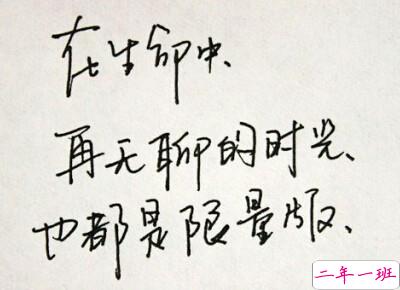 在生命中、
再无聊的时光、
也都是限量版、
二年一班